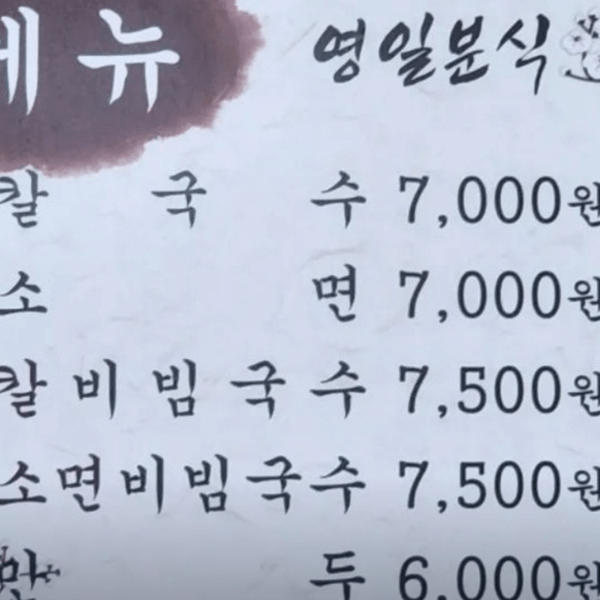 메뉴 영일분식
칼국수 7,000원
소면 7,000원
칼비빔국수 7,500원
소면비빔국수 7,500원
만두 6,000원